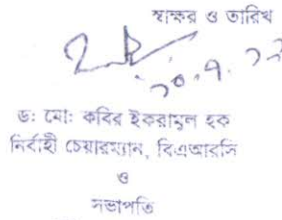 স্বাক্ষর ও তারিখ
ড: মো: কবির ইকরামুল হক
নির্বাহী চেয়ারম্যান, বিএআরসি
ও
সভাপতি